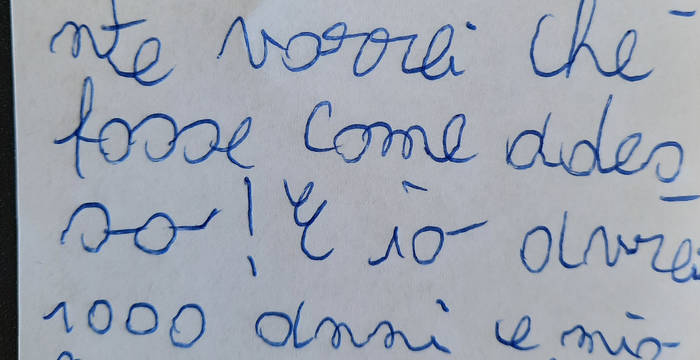 nte vorrei che
fosse come ades
so! E io avrei
1000 anni e mio